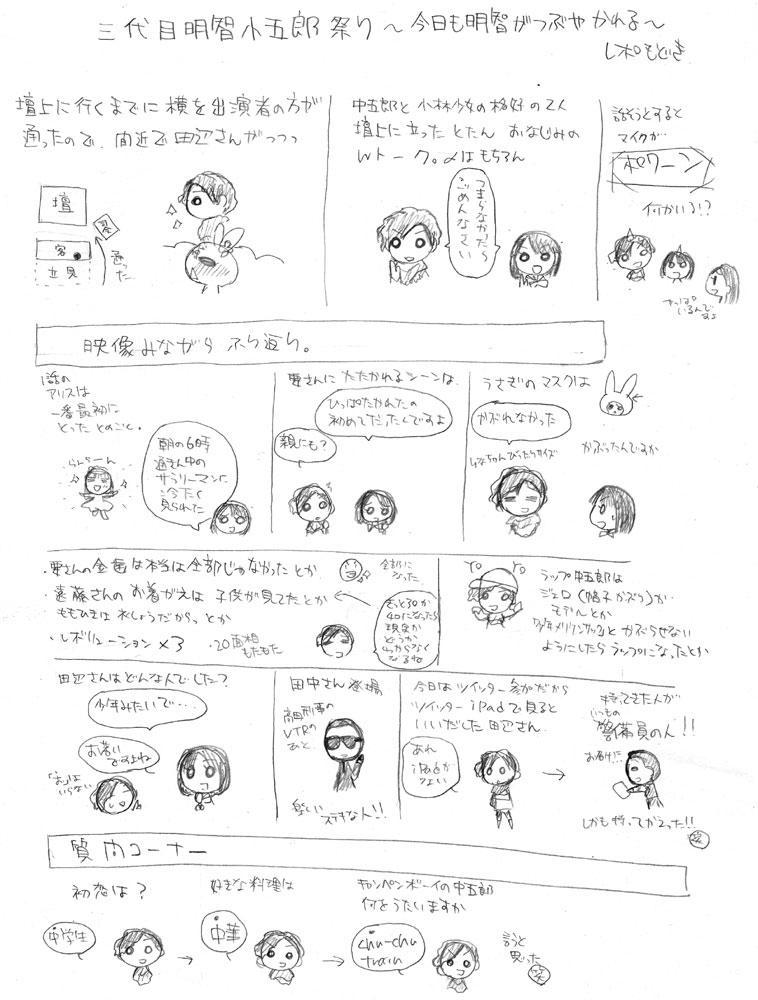 三代目明智小五郎祭り～今日も明智がつぶやかれる～
レポもどき
壇上に行くまでに横を出演者の方が
通ったので、間近で田辺さんがっっっ
壇
客
立見
通った
中五郎と小林少女の格好の2人
壇上に立ったとたん おなじみの
Wトーク。〆はもちろん
つまらなかたら
ごめんなさい
話そうとすると
マイクが…
ポワーン
何かいる!?
やっぱ
いるんで
すよ
映像みながら ふり返り。
1話の
アリスは
一番最初に
とった とのこと。
らんらーん
朝の6時
通きん中の
サラリーマンに
冷たく
見られた
さんに たたかれるシーンは
ひっぱたかれたの
初めてだったんですよ
親にも?
うさぎのマスクは
かぶれなかった
ちゃんぴったりサイズ
かぶったんですか
さんの金歯は本当は全部じゃなかったとか
全部に
なった。
・遠藤さんのお着がえは 子供が見てたとか
ももひきは れしょうだからっとか
・レボリューション×3
・20面相
もたもた
きっと30か
40になったら
現実か
どうか
わからなく
なるね
YO
YO
ラップ中五郎は
ジェロ(帽子かぶり)が
モデルとか
「少年メリケンサック」とかぶらせない
ようにしたらラップになったとか
田辺さんはどんなんでした?
少年みたいで…
お若い
ですよね
「お」は
いらない
田中さん登場
高田刑事の
VTRの
あと
楽しい
ステキな人!!
今日はツイッター参加だから
ツイッター iPadで見ると
いいだした田辺さん
あれ
iPadが
ない
→
持ってきた人が
いつもの
警備員の人!!
お届け!!
しかも持ってかえった!!
笑
質問コーナー
初恋は?
中学生
→
好きな料理は
中華
→
キャンペンボーイの中五郎
何をうたいますか
chu-chu
train
言うと
思った
笑